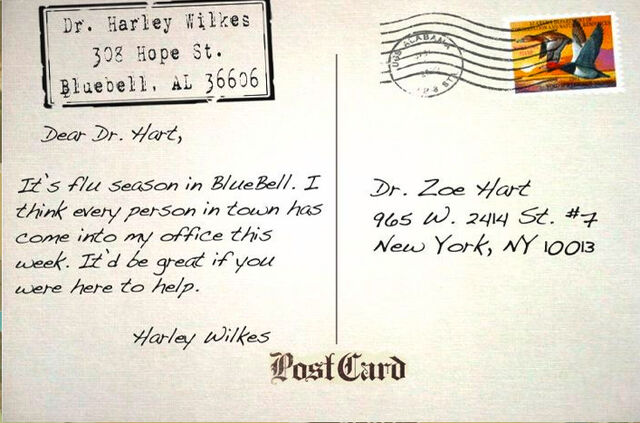 Dr. Harley Wilkes
308 Hope St.
Bluebell, AL 36606
Dear Dr. Hart,
It's flu season in BlueBell. I
think every person in town has
come into my office this
week. It'd be great if you
were here to help.
Harley Wilkes
ALABAMA
Dr. Zoe Hart
965 W. 2414 St. #7
New York, NY 10013
PostCard